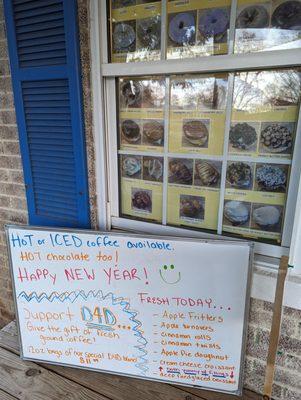 HOT or ICED coffee available.
HOT chocolate too!
HAPPY NEW YEAR!
FRESH TODAY...
Support D4D...
Give the gift of fresh
ground coffee!
12oz bags of our special D4D blend
$11
- Apple Fritters
- Apple turnovers
- Cinnamon rolls
- Cinnamon twists
- Apple Pie doughnut
- cream cheese croissant
- deep fried glazed croissant